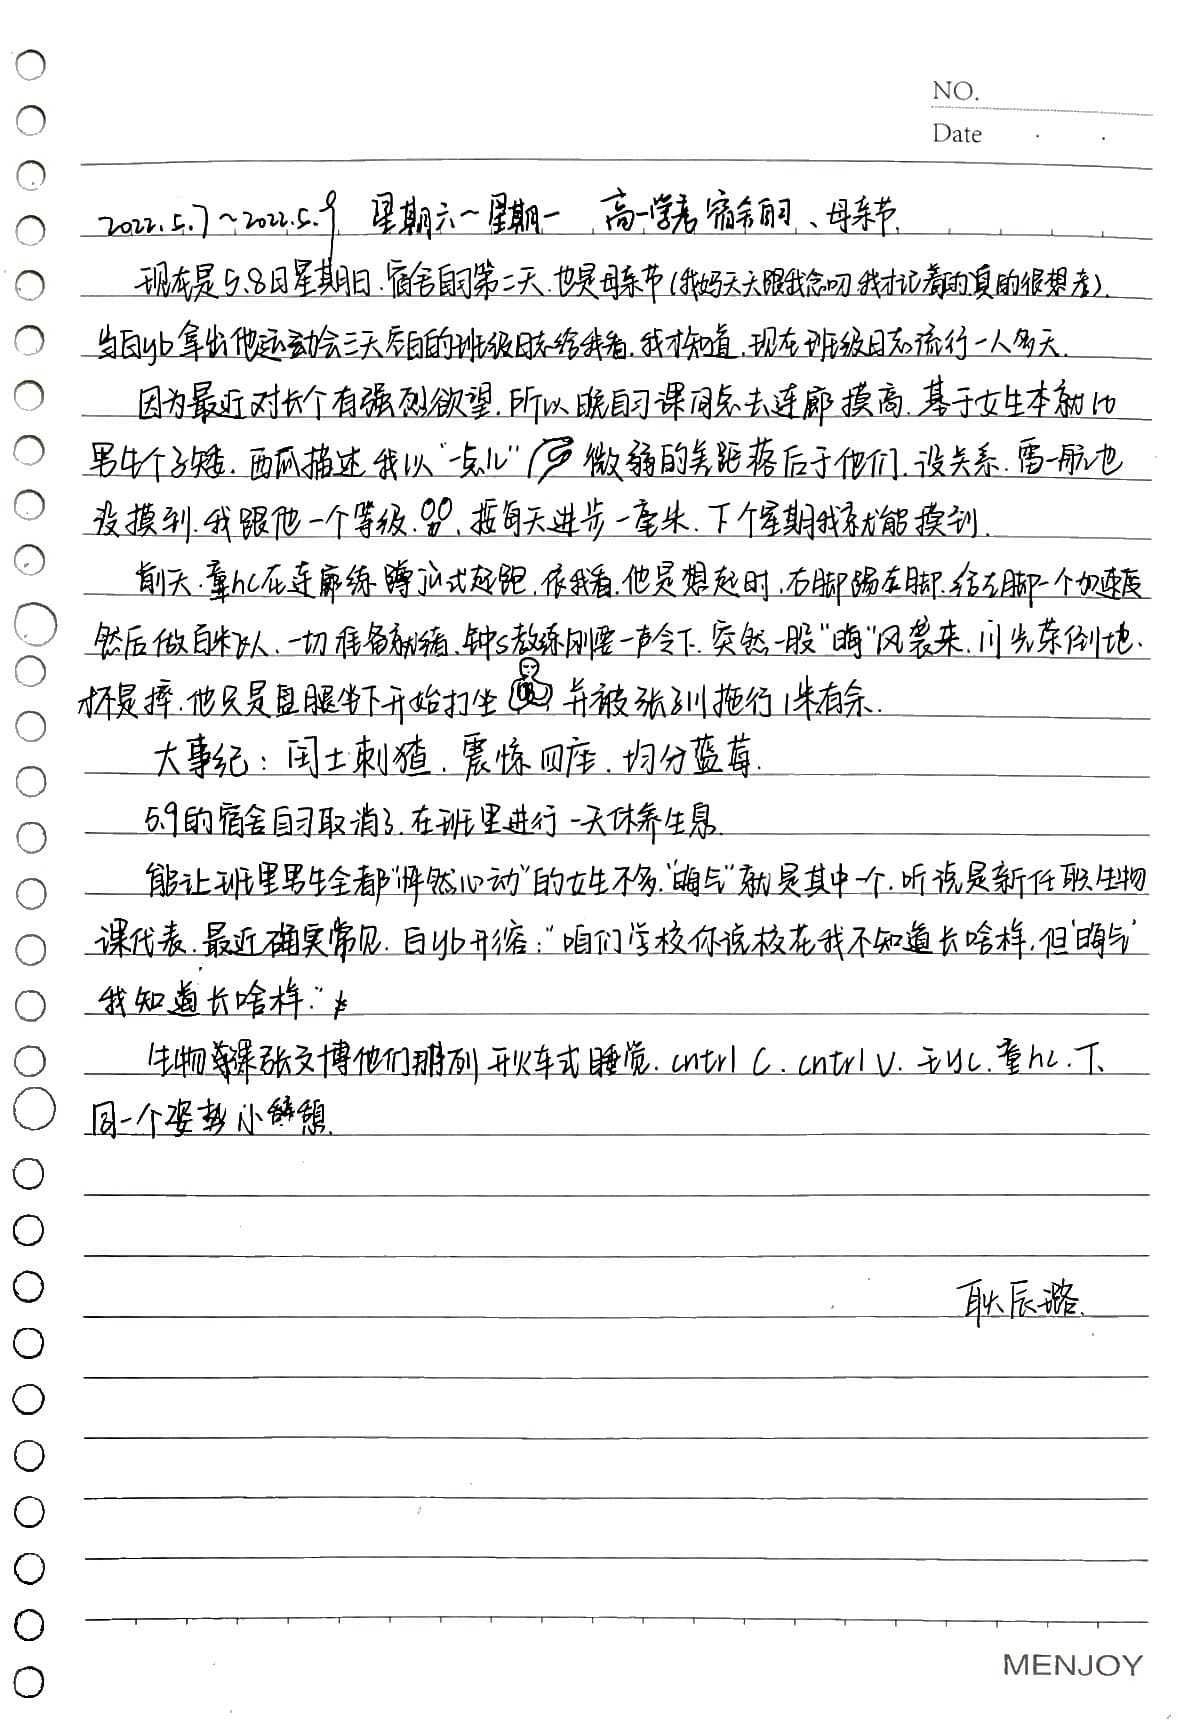 NO.
Date
2022.5.7～2022.5.9 星期六～星期一 高一学考 宿舍自习、母亲节.
现在是5.8日星期日.宿舍自习第二天.也是母亲节(我妈天天跟我念叨我才记着的真的很想考).
当白yb拿出他运动会三天空白的班级日志给我看.我才知道.现在班级日志流行一人多天.
因为最近对长个有强烈欲望.所以晚自习课间总去连廊摸高.基于女生本就比
男生个子矮.西瓜描述我以“一点儿”微弱的差距落后于他们.没关系.雷一航也
没摸到.我跟他一个等级.按每天进步一毫米.下个星期我就能摸到.
前天.童hc在连廊练蹲认式起跑.依我看.他是想起时.右脚踢左脚.给左脚一个加速度
然后做百米飞人.一切准备就绪.钟s教练刚要一声令下.突然一股“晦”风袭来.川光荣倒地.
不是摔.他只是盘腿坐下开始打坐 并被张3川拖行1米有余.
大事纪：闰土刺猹.震惊四座.均分蓝莓.
5.9的宿舍自习取消了.在班里进行一天休养生息.
能让班里男生全都“怦然心动”的女生不多.“晦气”就是其中一个.听说是新任职生物
课代表.最近确实常见.白yb开缩：“咱们学校你说校花我不知道长啥样.但‘晦气’
我知道长啥样.”
生物课张文博他们那列开火车式睡觉.cntrl C.cntrl V.王yc.童hc.下.
同一个姿势小憩.
耿辰璐.
MENJOY